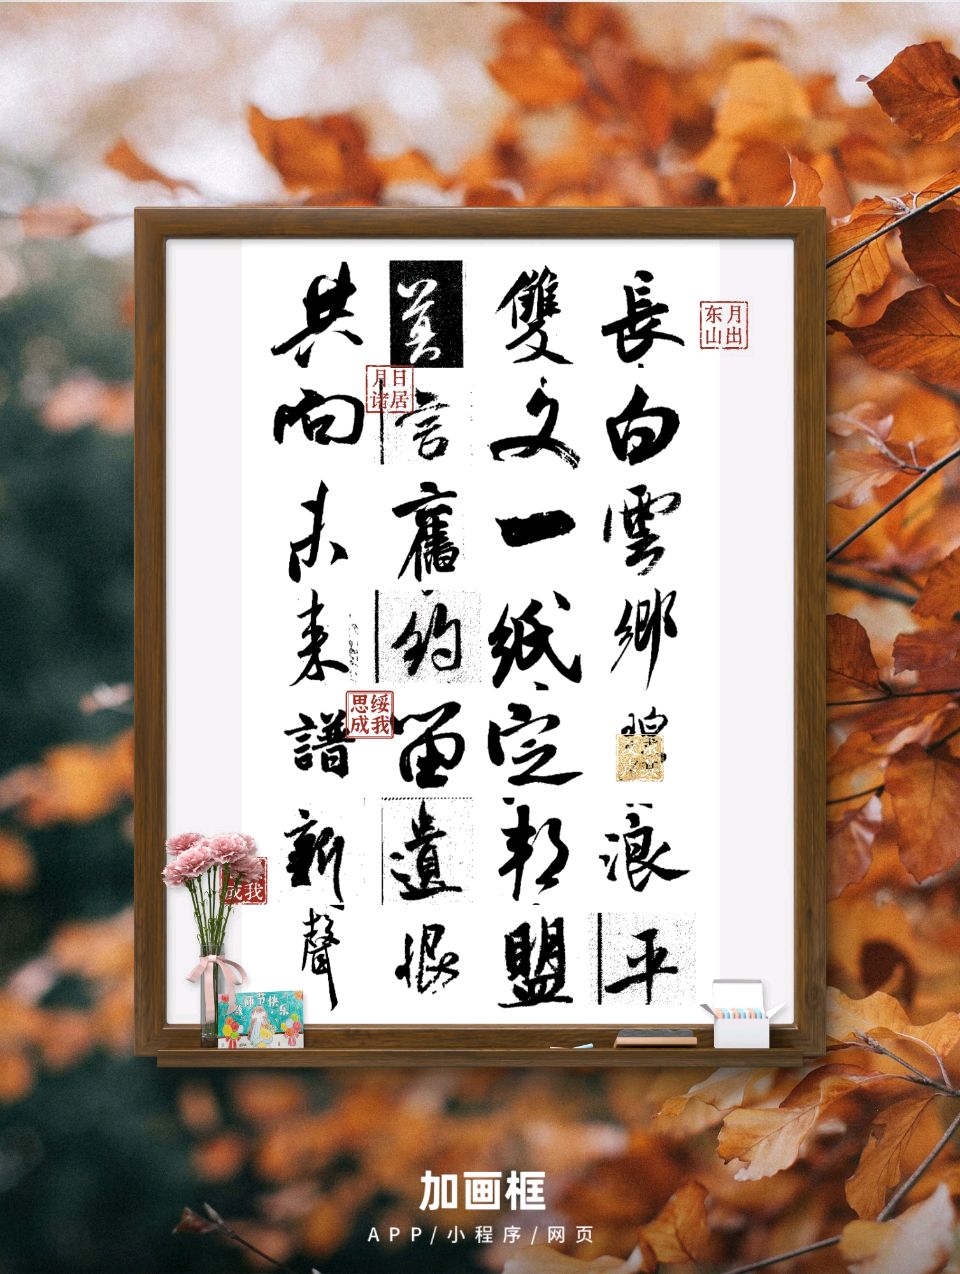 長白雲鄉碧浪平
雙文一紙定邦盟
莫言舊約留遺恨
共向未來譜新聲
月出东山
日居月诸
绥我思成
我成
师节快乐
加画框
APP/小程序/网页